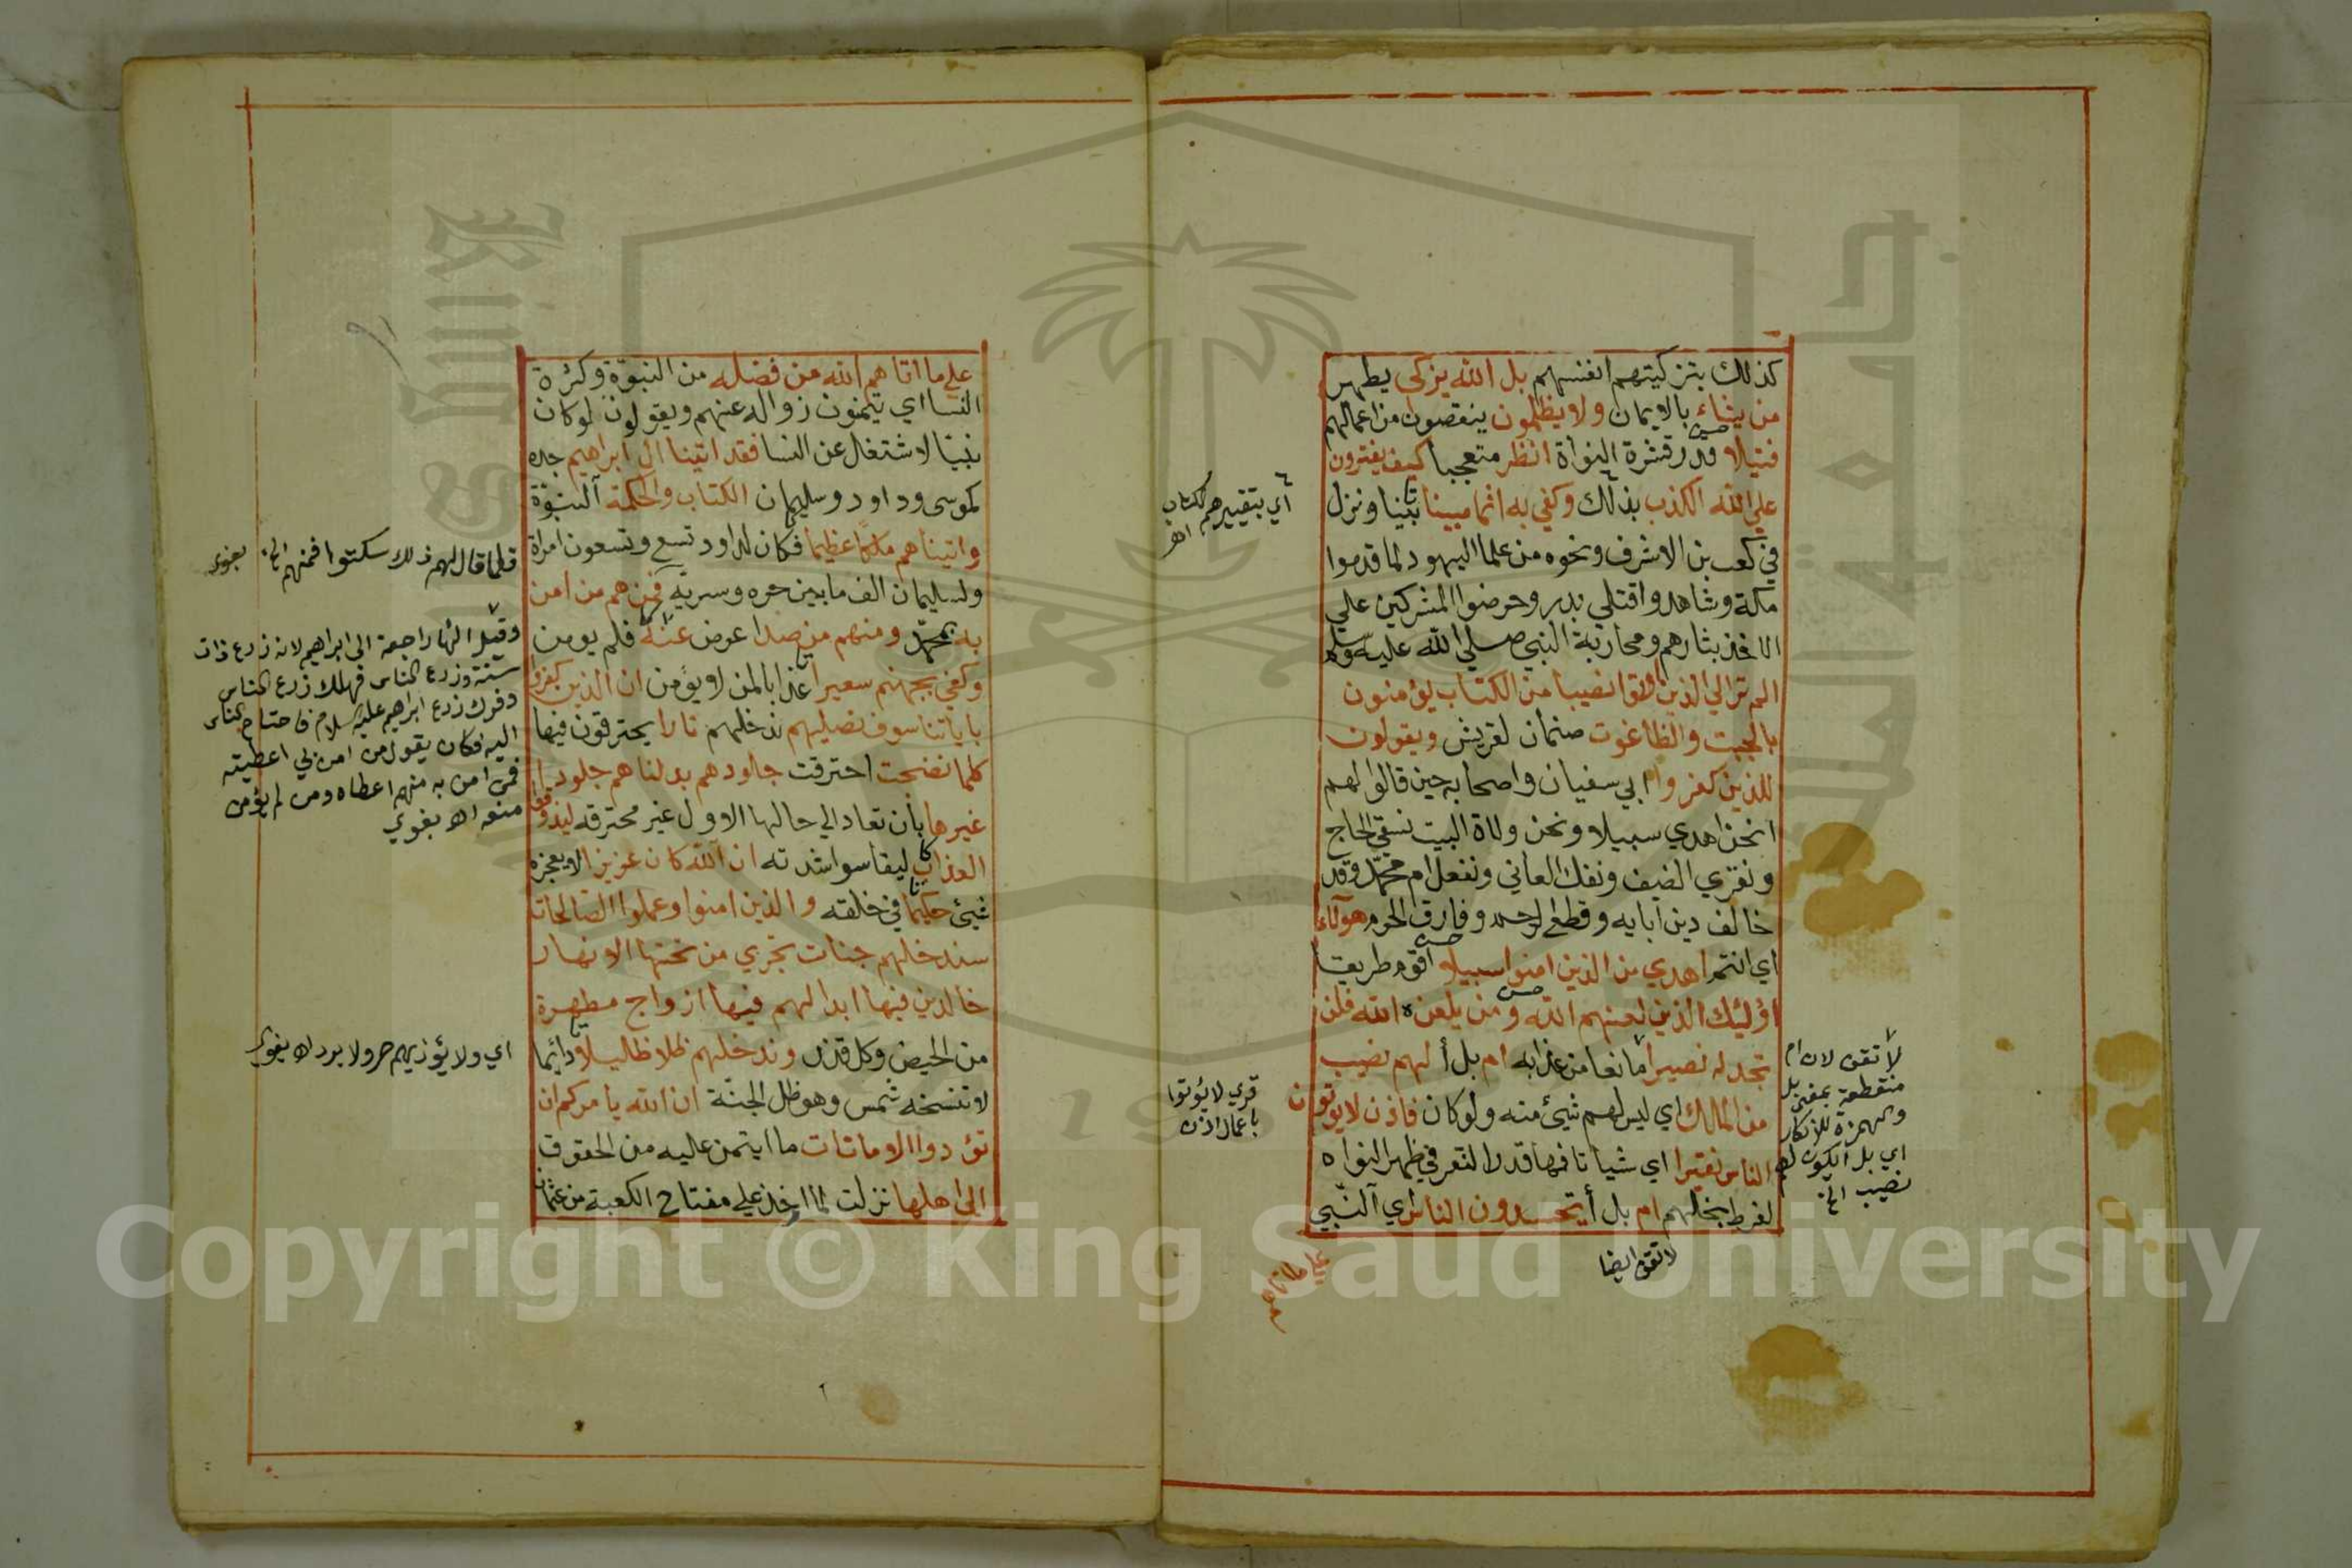 كذلك بتزكيتهم انفسهم بل الله يزكي يطهر
من يشاء بالايمان ولا يظلمون ينقصون من اعمالهم
فتيلا قدر قشرة النواة انظر متعجبا كيف يفترون
علي الله الكذب بذلك وكفي به اثما مبينا بينا ونزل
في كعب بن الاشرف ونحوه من علما اليهود لما قدموا
مكة وشاهدوا قتلي بدر وحرضوا المشركين علي
الاخذ بثارهم ومحاربة النبي صلي الله عليه وسلم
الم تر الي الذين اوتوا نصيبا من الكتاب يؤمنون
بالجبت والطاغوت صنمان لقريش ويقولون
للذين كفروا ابي سفيان واصحابه حين قالوا لهم
انحن اهدي سبيلا ونحن ولاة البيت نسقي الحاج
ونقري الضيف ونفك العاني ونفعل ام محمد وقد
خالف دين ابايه وقطع الرحم وفارق الحرم هولاء
اي انتم اهدي من الذين امنوا سبيلا اقوم طريقا
اؤليك الذين لعنهم الله ومن يلعنه الله فلن
تجد له نصيرا مانعا من عذابه ام بل أ لهم نصيب
من الملك اي ليس لهم شيئ منه ولو كان فاذن لا يوتون
الناس نقيرا اي شيا تافها قدر النقر في ظهر النواه
لفرط بخلهم ام بل أ يحسدون الناس اي النبي
اي بتغييرهم لكتاب
اهر
قري لا يؤتوا
باعمال اذن
لا تقف لان ام
منقطعة بمعنى بل
والهمزة للانكار
اي بل ايكون لهم
نصيب الخ
لا تقف ايضا
علي ما اتاهم الله من فضله من النبوة وكثرة
النسا اي يتمنون زواله عنهم ويقولون لو كان
نبيا لاشتغل عن النسا فقد اتينا ال ابراهيم جده
كموسى وداود وسليمان الكتاب والحكمة النبوة
واتيناهم ملكا عظيما فكان لداود تسع وتسعون امراة
ولسليمان الف ما بين حره وسرية فمنهم من امن
به بمحمد ومنهم من صد اعرض عنه فلم يومن
وكفي بجهنم سعيرا عذابا لمن لا يؤمن ان الذين كفروا
باياتنا سوف نصليهم ندخلهم نارا يحترقون فيها
كلما نضجت احترقت جلودهم بدلناهم جلودا
غيرها بان تعاد الي حالها الاول غير محترقه ليذوقوا
العذاب ليقاسوا شدته ان الله كان عزيزا لا يعجزه
شيئ حكيما في خلقه والذين امنوا وعملوا الصالحات
سندخلهم جنات تجري من تحتها الانهار
خالدين فيها ابدا لهم فيها ازواج مطهرة
من الحيض وكل قذر وندخلهم ظلا ظليلا دايما
لا تنسخه شمس وهو ظل الجنة ان الله يامركم ان
تؤدوا الامانات ما ايتمن عليه من الحقوق
الي اهلها نزلت لما اخذ علي مفتاح الكعبة من عثمان
فلما قال لهم ذلك سكتوا فمنهم الخ بغوي
وقيل الها راجعة الى ابراهيم لانه زرع ذات
سنة وزرع الناس فهلك زرع الناس
وفرك زرع ابراهيم عليه السلام فاحتاج الناس
اليه فكان يقول من امن بي اعطيته
فمن امن به منهم اعطاه ومن لم يؤمن
منعه اهـ بغوي
اي ولا يؤذيهم حر ولا برد اهـ بغوي
Copyright © King Saud University